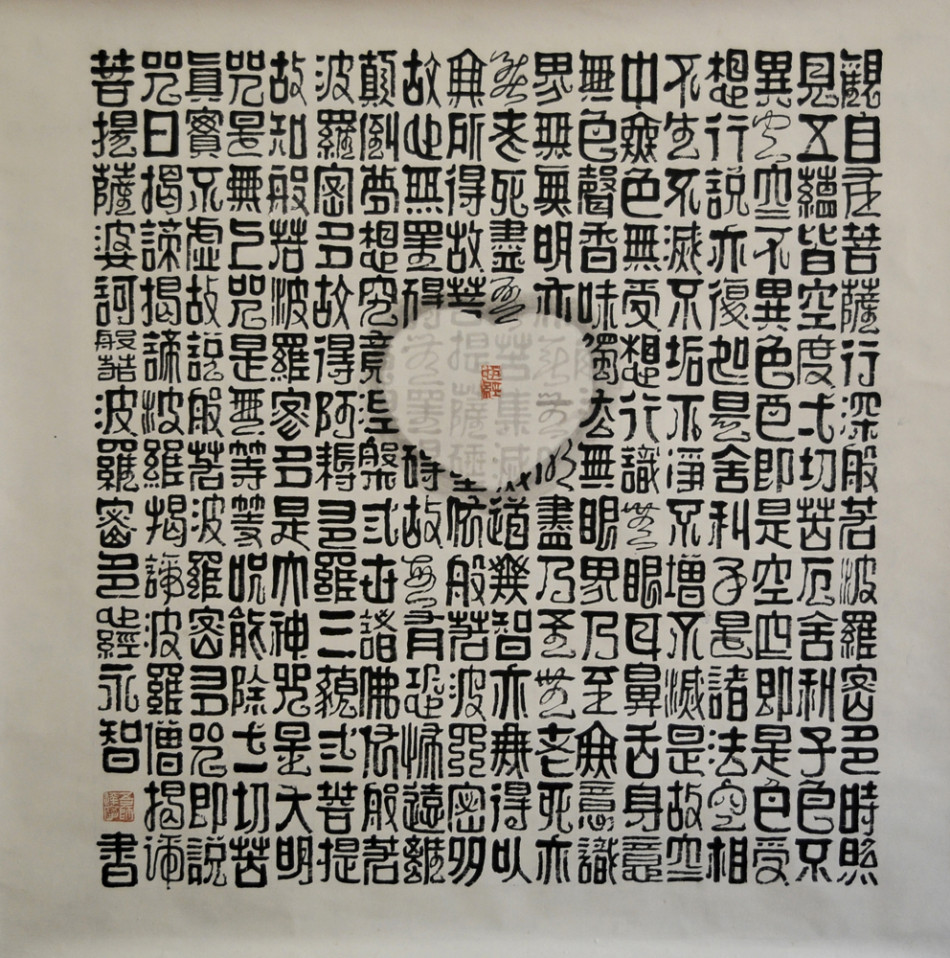 觀自在菩薩行深般若波羅密多時照
見五蘊皆空度弌切苦厄舍利子色不
異空空不異色色即是空空即是色受
想行説亦復如是舍利子是諸法空相
不生不滅不垢不淨不增不滅是故空
中無色無受想行識無眼耳鼻舌身意
無色聲香味觸法無眼界乃至無意識
界無無明亦無無明盡乃至無老死亦
無老死盡無苦集滅道無智亦無得以
無所得故菩提薩埵依般若波羅密多
故心無罣礙無罣礙故無有恐怖遠離
顛倒夢想究竟涅槃弎世諸佛依般若
波羅密多故得阿耨多羅三藐弎菩提
故知般若波羅密多是大神咒是大明
咒是無上咒是無等等呪能除弌切苦
真實不虛故說般若波羅密多咒即說
咒曰揭諦揭諦波羅揭諦波羅僧揭諦
菩提薩婆訶般若波羅密多心經永智書